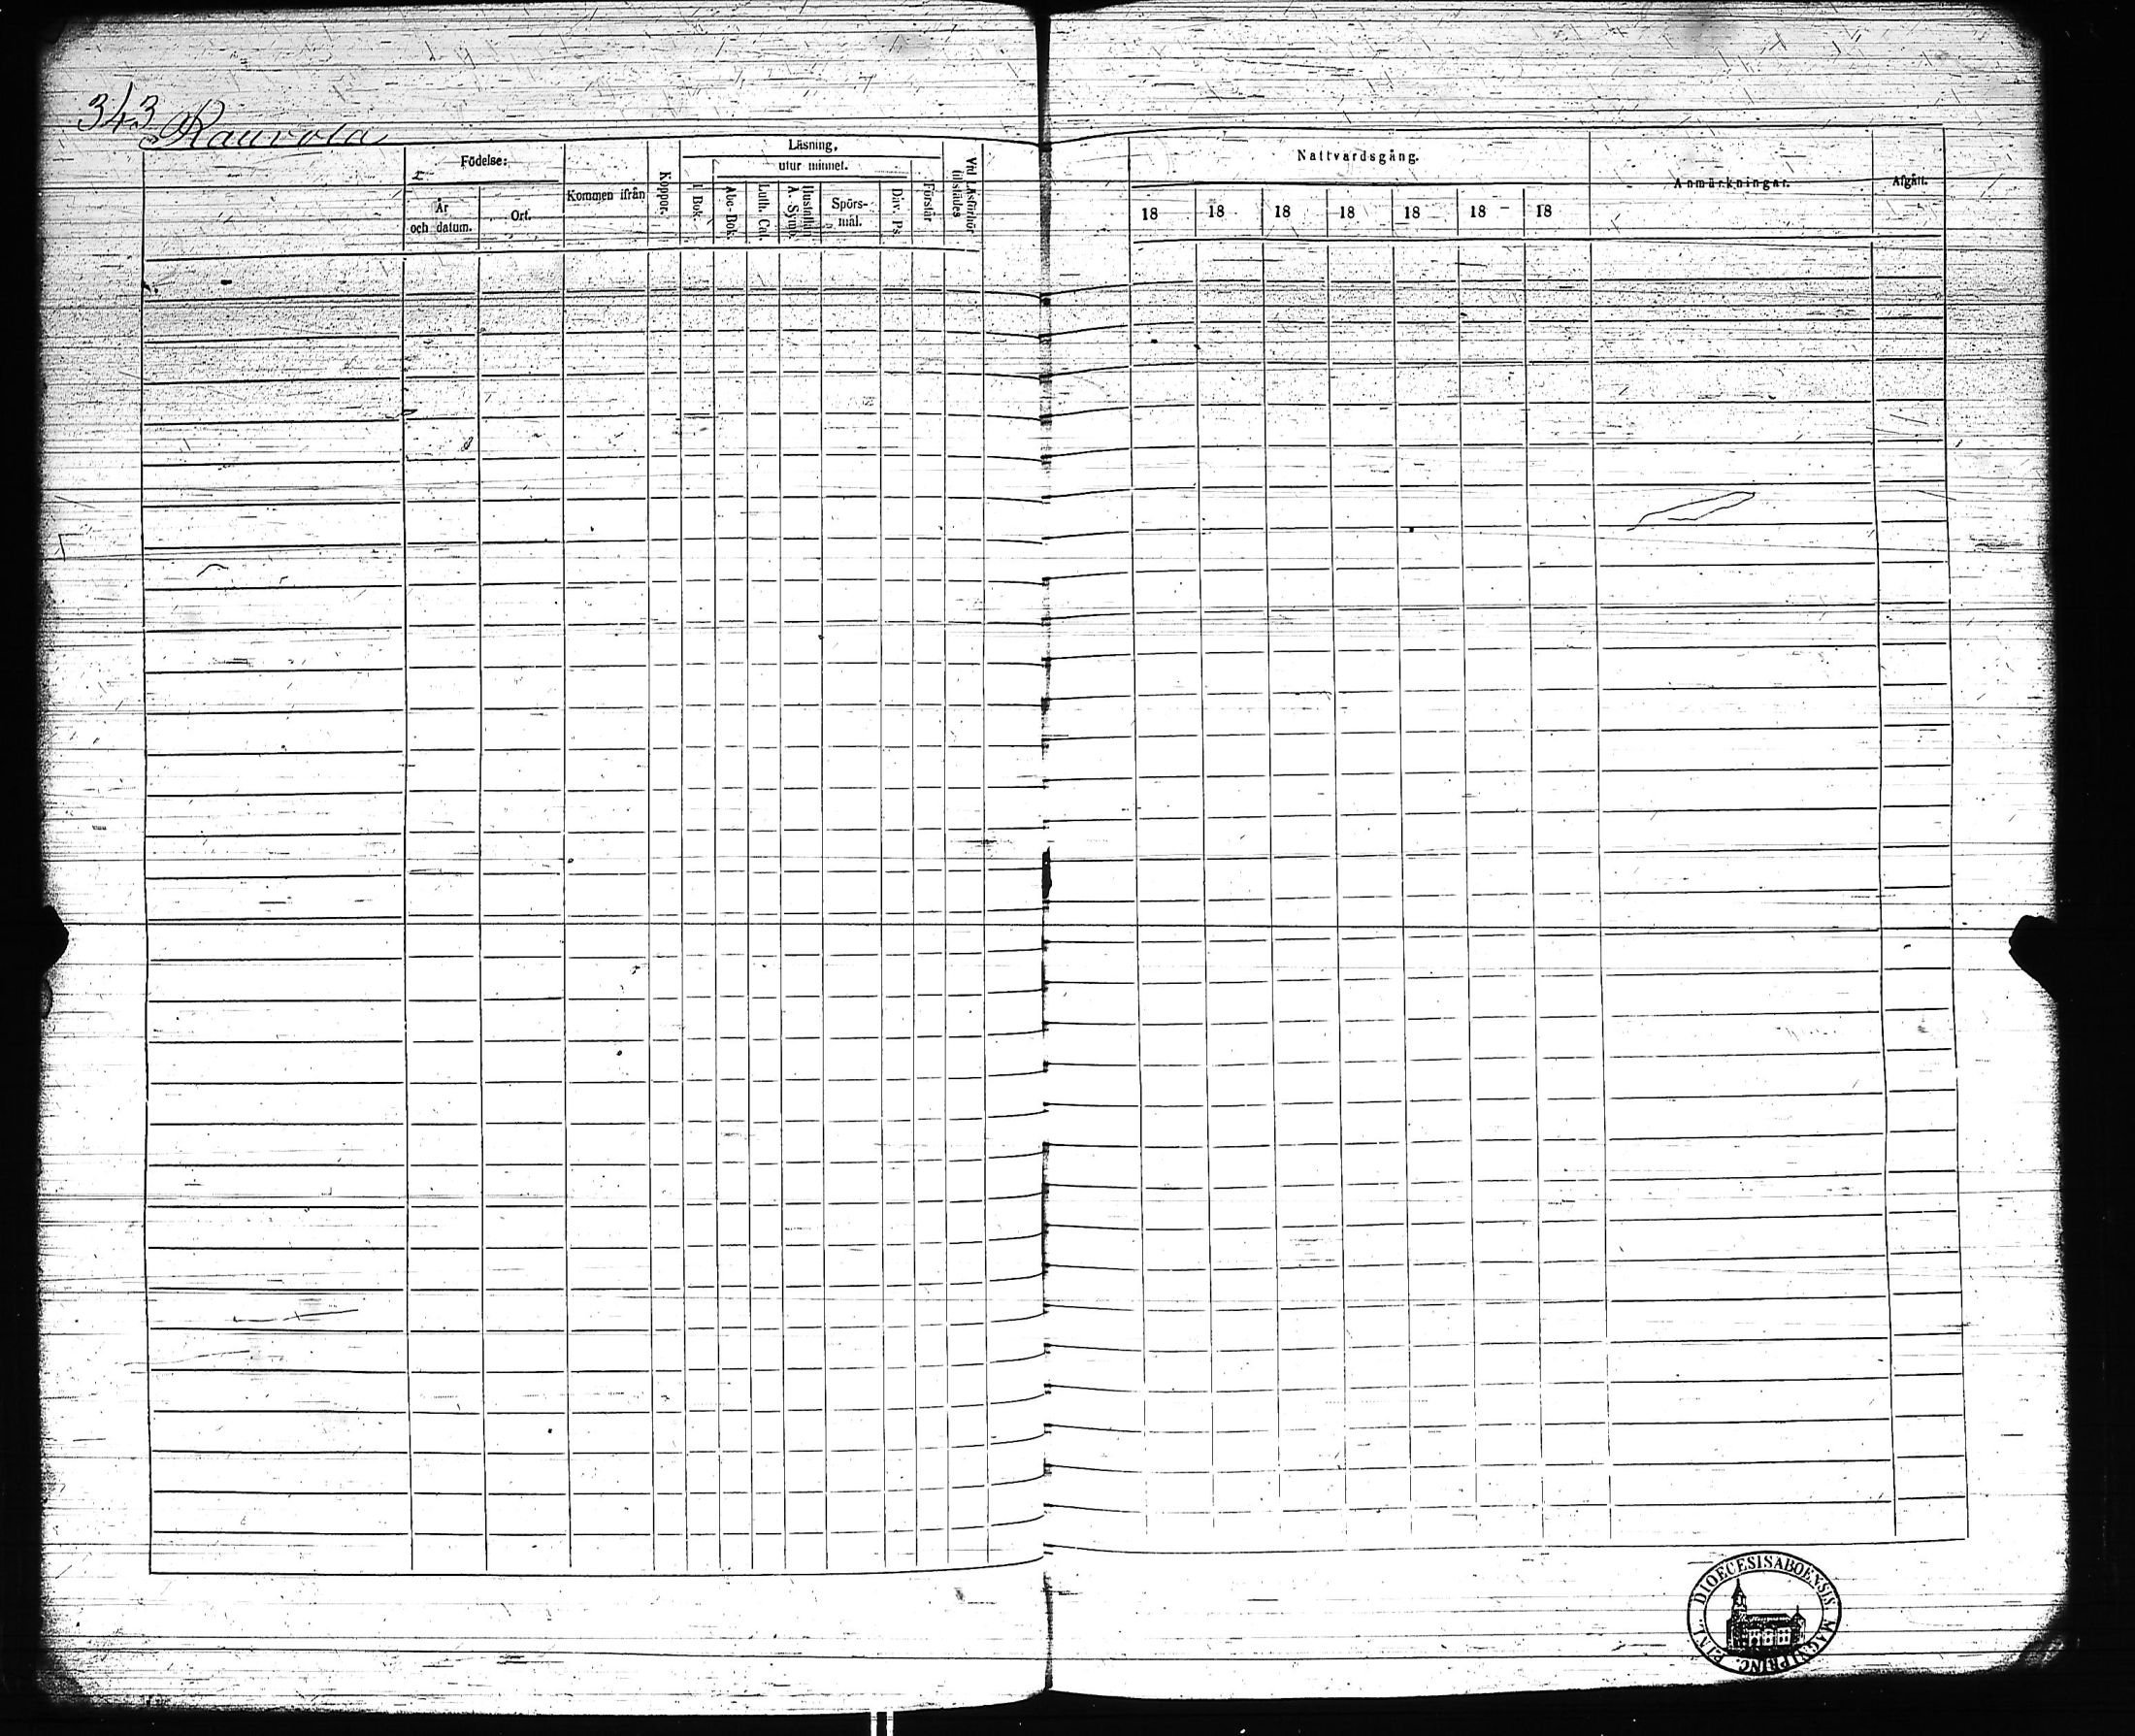 343 Rauvola
Födelse:
År och datum.
Ort.
Kommen ifrån
Koppor.
Läsning,
I Bok.
utur minnet.
Abc-Bok.
Luth. Cat.
Hustafla A. Symb.
Spörs-mål.
Dav. Ps.
Förstår
Vid Läsförhör tillstädes
Nattvardsgång.
18 18 18 18 18 18 18
Anmärkningar.
Afgått.
DIOECESIS ABOENSIS MAGNI PRINC. FINL.